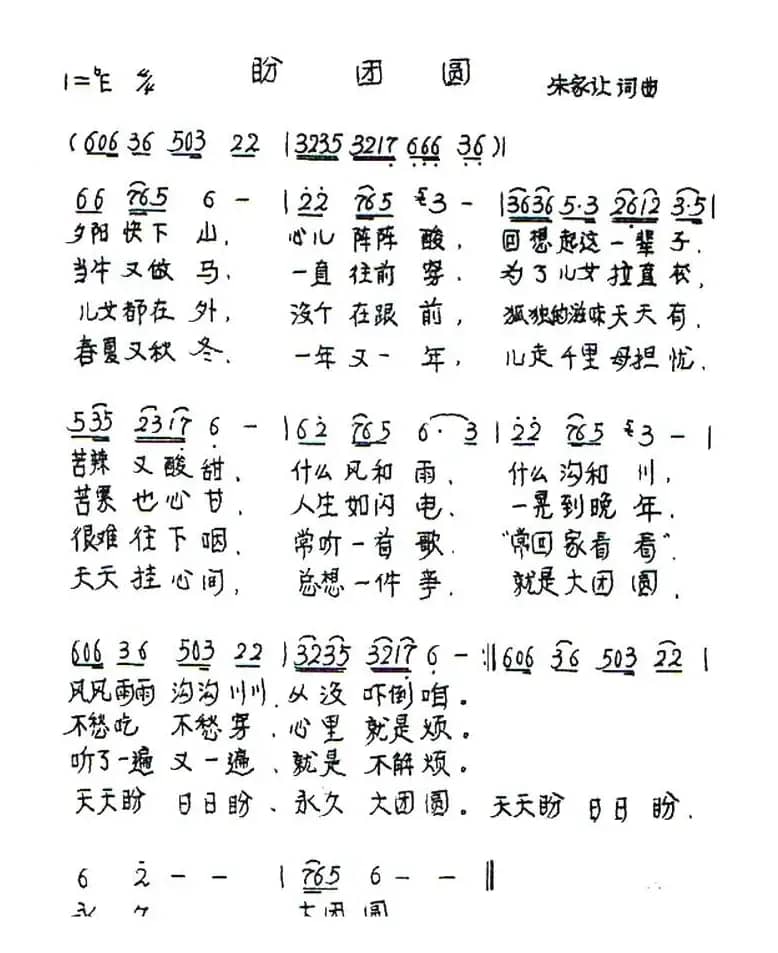 盼团圆
1=♭E 4/4 朱家让 词曲
(606 36 503 22 | 3235 3217 666 36)|
66 765 6 - | 22 765 3 - | 3636 5·3 2612 3·5|
夕阳快下山, 心儿阵阵酸, 回想起这一辈子.
当牛又做马, 一直往前 为了儿女拉直
儿女都在外, 没个在跟前, 孤独的滋味天天有.
春夏又秋冬. 一年又一年, 儿走千里母担忧.
535 2317 6 - | 62 765 6· 3 | 22 765 3 - |
苦辣又酸甜. 什么风和雨. 什么沟和川.
苦累也心甘. 人生如闪电. 一晃到晚年.
很难往下咽. 常听一首歌. "常回家看看".
天天挂心间, 总想一件事. 就是大团圆.
606 36 503 22 | 3235 3217 6 - :‖ 606 36 503 22 |
风风雨雨沟沟川川. 从没吓倒咱。
不愁吃 不愁穿. 心里就是烦。
听了一遍又一遍、就是不解烦。
天天盼 日日盼、永久大团圆。天天盼 日日盼.
6 2 - - | 765 6 - - ‖
永久 大团圆